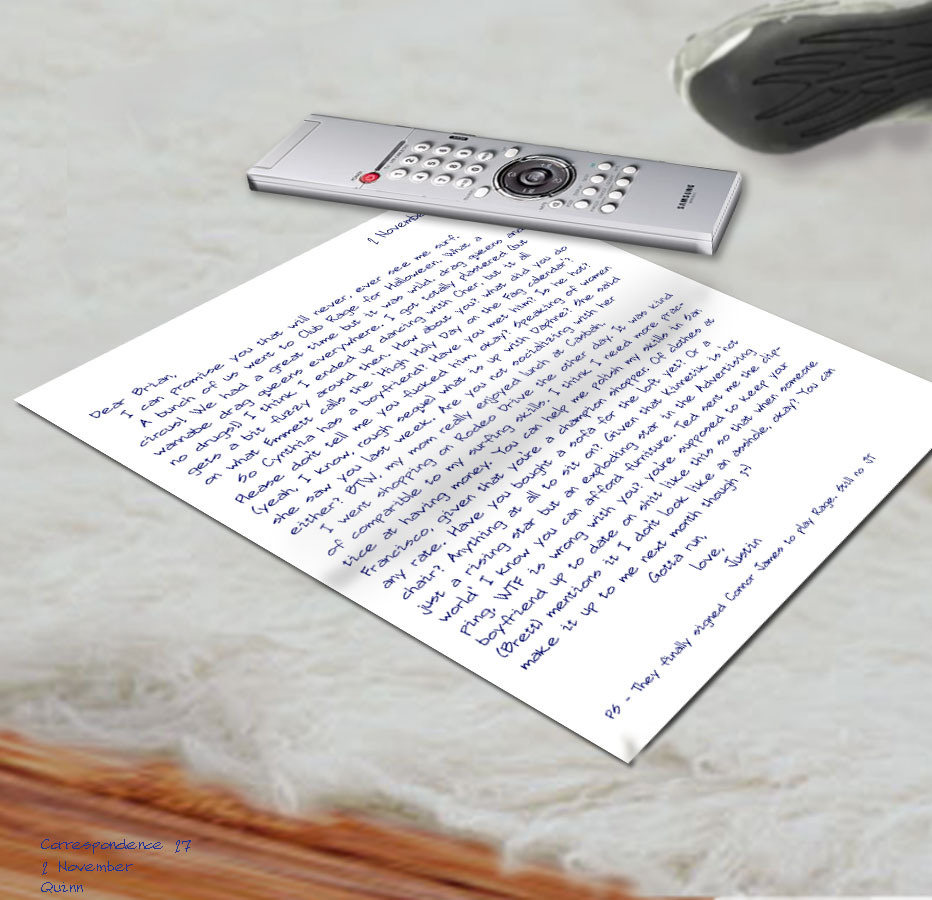 SAMSUNG
2 Novembe
Dear Brian,
I can promise you that will never, ever see me surf.
A bunch of us went to Club Rage for Halloween. What a
circus! We had a great time, but it was wild, drag queens and
wannabe drag queens everywhere. I got totally plastered (but
no drugs!) I think I ended up dancing with Cher, but it all
gets a bit fuzzy around then. How about you? what did you do
on what Emmett calls the High Holy Day on the Fag calendar?
So Cynthia has a boyfriend? Have you met him? Is he hot?
Please don't tell me you fucked him, okay? Speaking of women
(yeah, I know, rough seque) what is up with Daphne? She said
she saw you last week. Are you not socializing with her
either? BTW, my mom really enjoyed lunch at Casbah.
I went shopping on Rodeo Drive the other day. It was kind
of comparible to my surfing skills. I think I need more prac-
tice at having money. You can help me polish my skills in San
Francisco, given that you're a champion shopper. Of clothes at
any rate. Have you bought a sofa for the loft yet? Or a
chair? Anything at all to sit on? Given that Kinnetik is not
just a rising star but an exploding star in the Advertising
world' I know you can afford furniture. Ted sent me the clip-
ping. WTF is wrong with you? you're supposed to keep your
boyfriend up to date on shit like this so that when someone
(Brett) mentions it I don't look like an asshole, okay? You can
make it up to me next month though ;)
Gotta run,
love,
Justin
PS - They finally signed Connor James to play Rage. Still no JT
Correspondence 27
2 November
Quinn